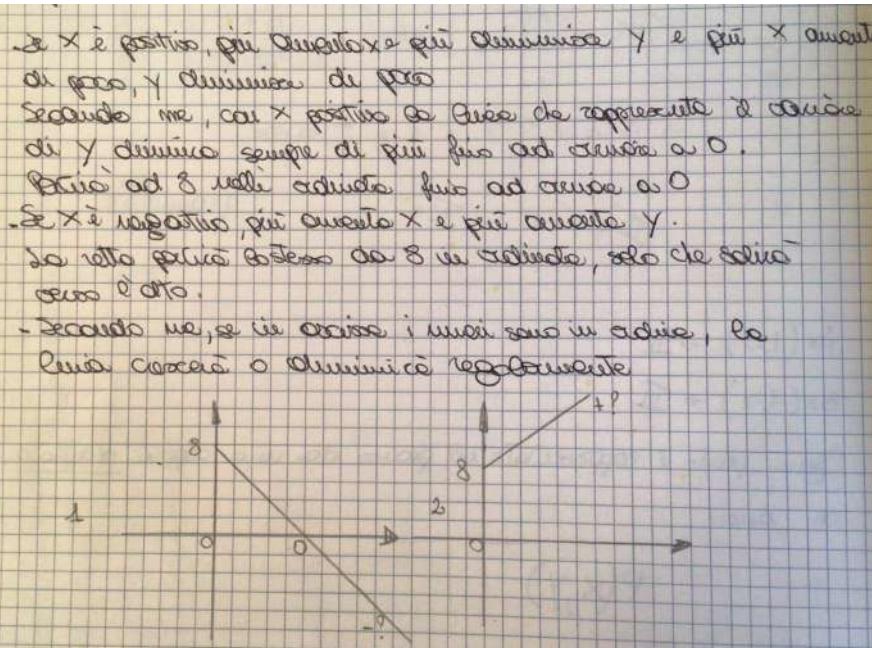 - Se X è positivo, più aumenta x e più diminuisce y e più X aument
di poco, y diminuisce di poco
Secondo me, con X positivo la linea che rappresenta il
di y diminuirà sempre di più fino ad arrivare a 0.
Partirà ad 8 nelle ordinate fino ad arrivare a 0
- Se X è negativo, più aumenta X e più aumenta y.
La retta partirà lo stesso da 8 in ordinata, solo che salirà
verso l'alto.
- Secondo me, se in ascissa i numeri sono in ordine, la
linia crescerà o diminuirà regolarmente
8
0
0
-?
1
+?
8
0
2